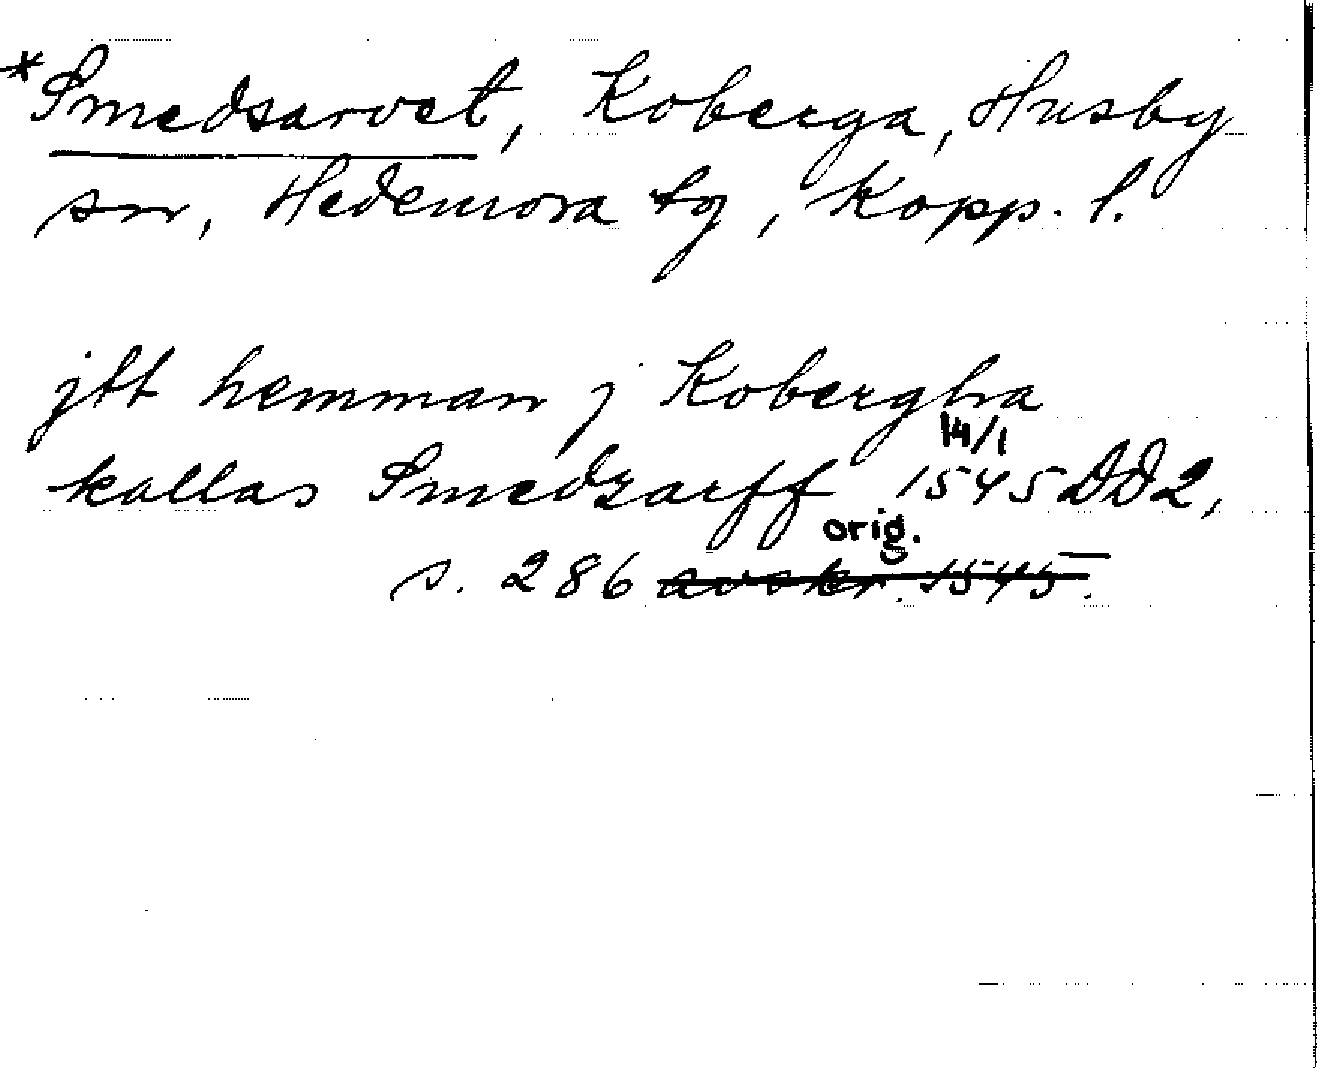 *Smedsarvet, Koberga, Husby
sn, Hedemora tg, Kopp. l.
jtt hemman j Kobergha
14/1
kallas Smedzarff 1545 DD2,
orig.
s. 286 avskr. 1545.